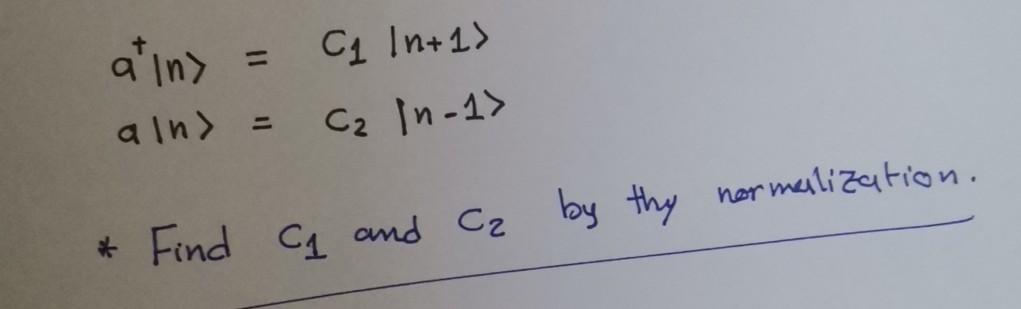 a†|n> = C1 |n+1>
a|n> = C2 |n-1>
* Find C1 and C2 by thy normalization.